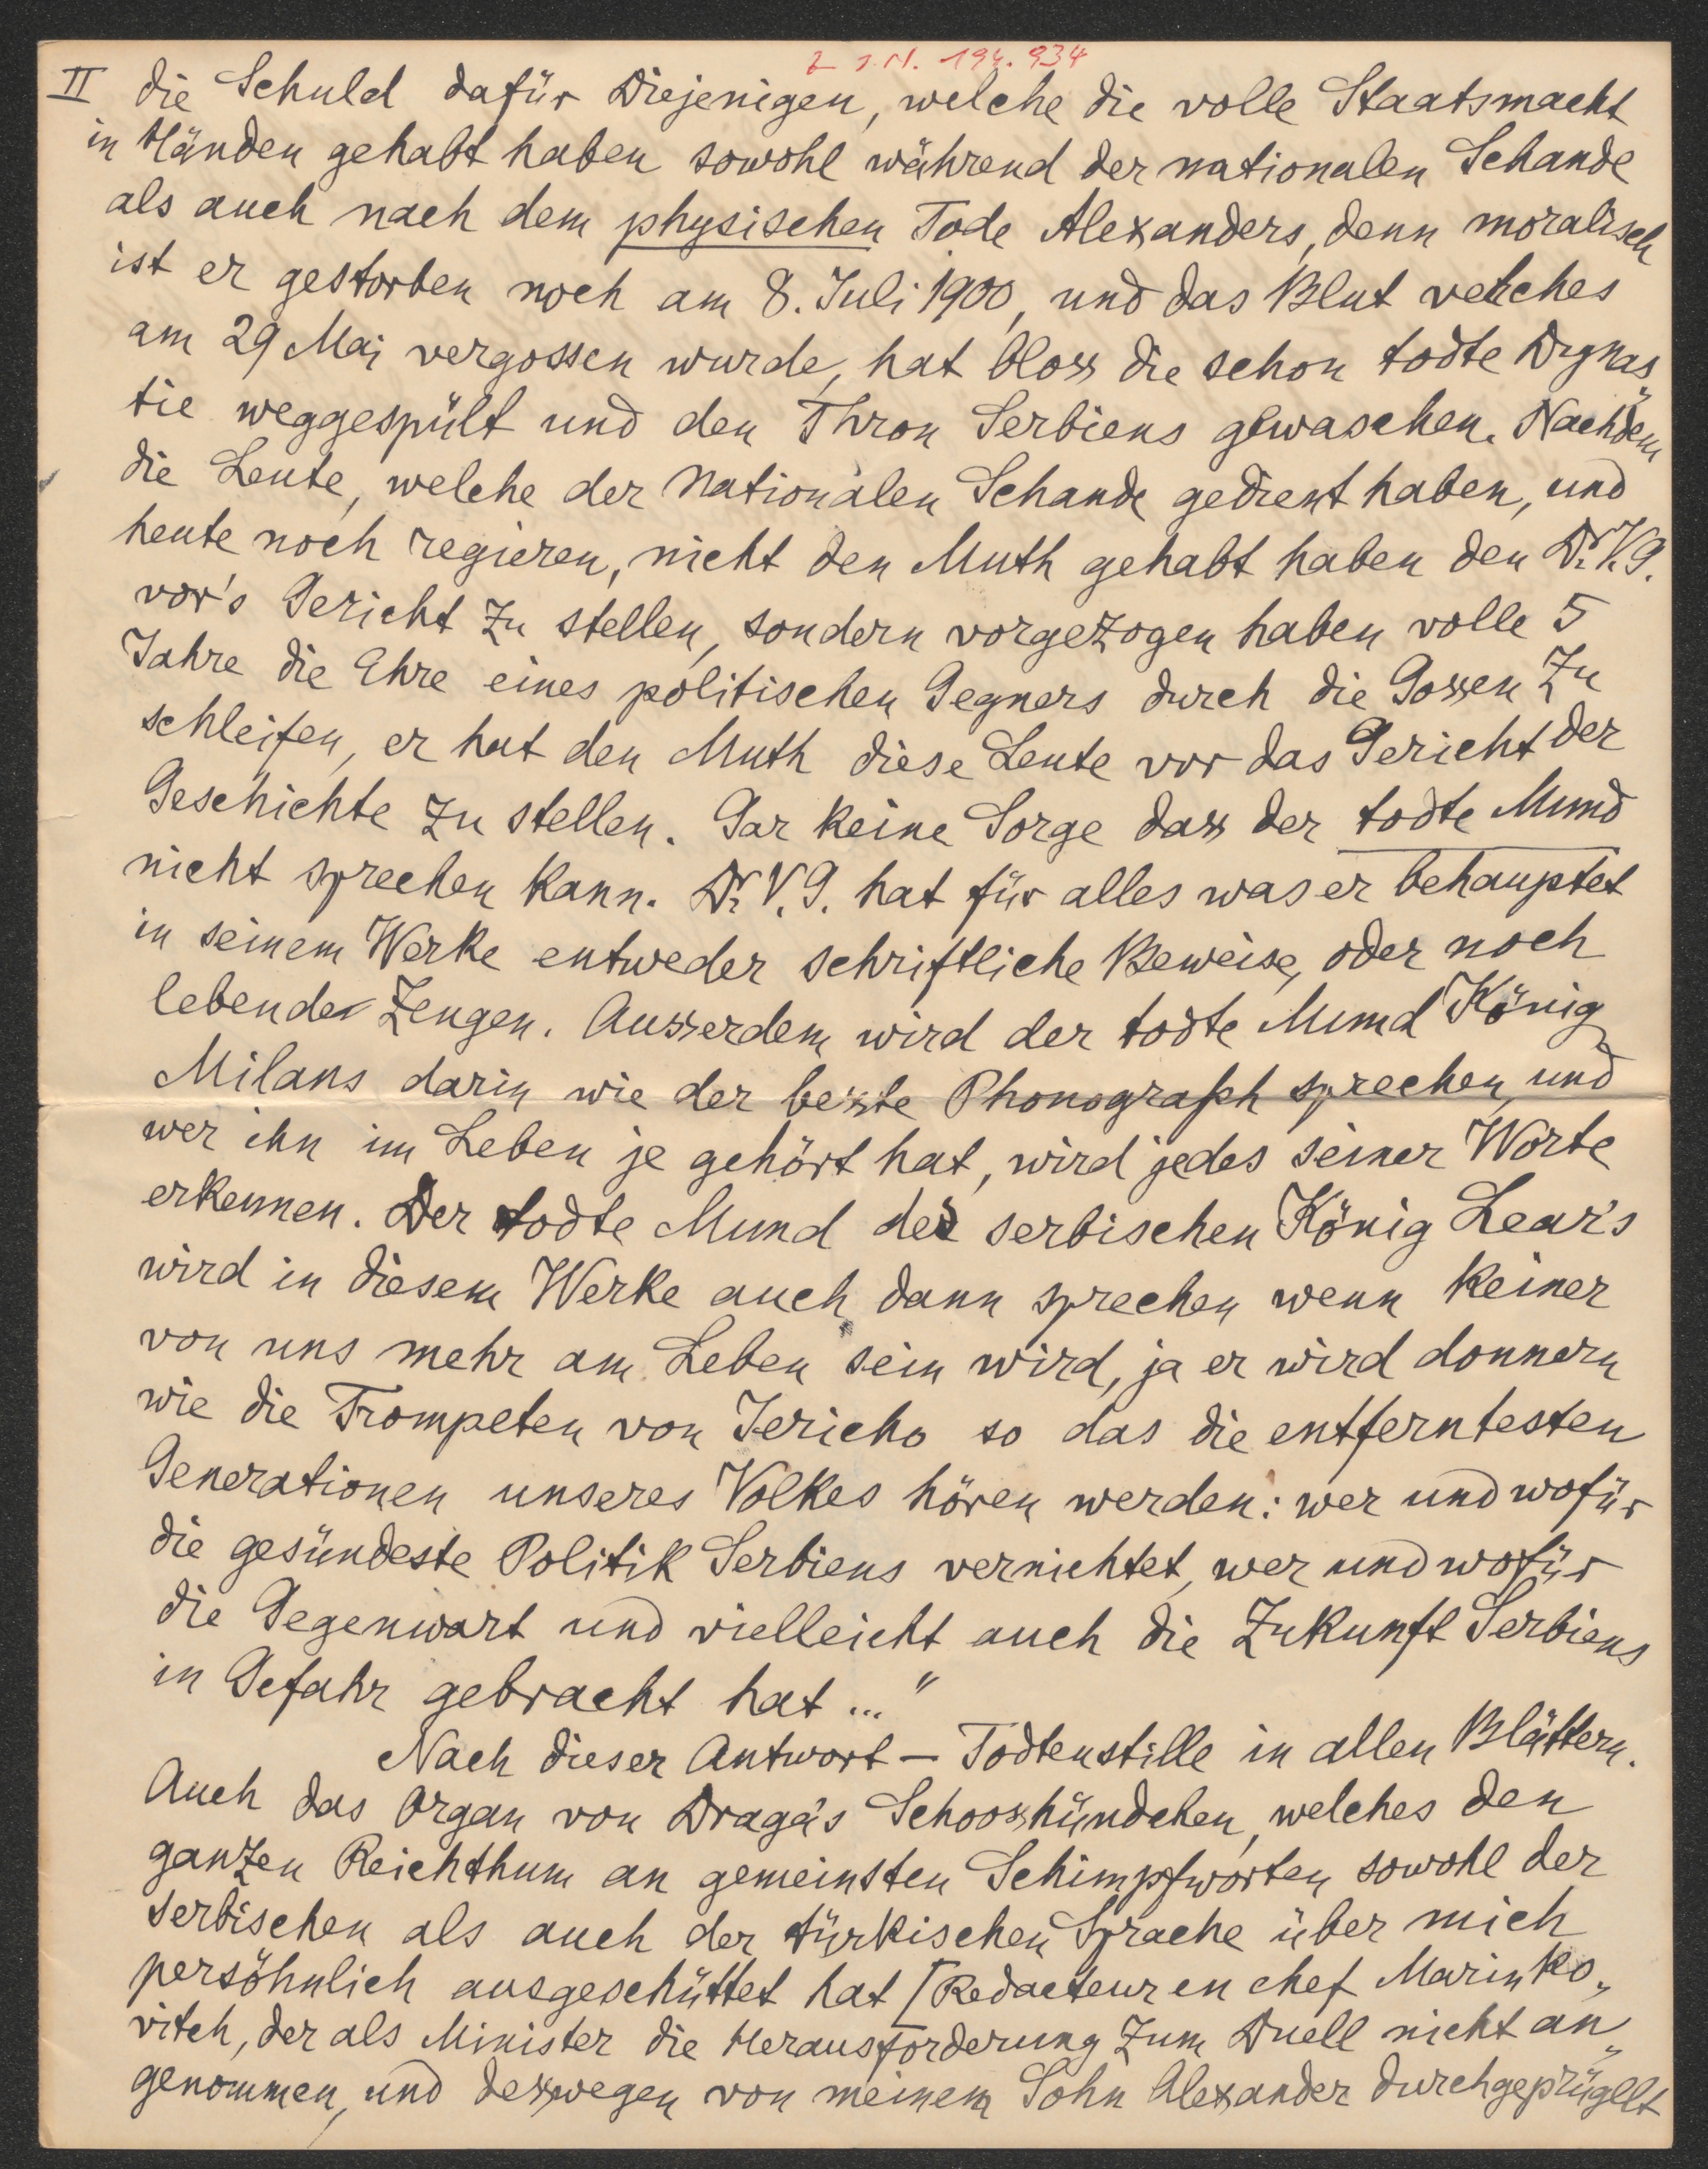 z J.N. 194.934
II die Schuld dafür Diejenigen, welche die volle Staatsmacht
in Händen gehabt haben sowohl während der nationalen Schande
als auch nach dem physischen Tode Alexanders, denn moralisch
ist er gestorben noch am 8. Juli 1900, und das Blut welches
am 29 Mai vergossen wurde, hat bloss die schon todte Dynas„
tie weggespült und den Thron Serbiens gewaschen. Nachdem
die Leute, welche der Nationalen Schande gedient haben, und
heute noch regieren, nicht den Muth gehabt haben den Dr. V. G.
vor's Gericht zu stellen, sondern vorgezogen haben volle 5
Jahre die Ehre eines politischen Gegners durch die Gossen zu
schleifen, er hat den Muth diese Leute vor das Gericht der
Geschichte zu stellen. Gar keine Sorge dass der todte Mund
nicht sprechen kann. Dr. V. G. hat für alles was er behauptet
in seinem Werke entweder schriftliche Beweise, oder noch
lebende Zeugen. Ausserdem wird der todte Mund König
Milans darin wie der beste Phonograph sprechen, und
wer ihn im Leben je gehört hat, wird jedes seiner Worte
erkennen. Der todte Mund des serbischen König Lear's
wird in diesem Werke auch dann sprechen wenn keiner
von uns mehr am Leben sein wird, ja er wird donnern
wie die Trompeten von Jericho so das die entferntesten
Generationen unseres Volkes hören werden: wer und wofür
die gesündeste Politik Serbiens vernichtet, wer und wofür
die Gegenwart und vielleicht auch die Zukunft Serbiens
in Gefahr gebracht hat ..."
Nach dieser Antwort – Todtenstille in allen Blättern.
Auch das Organ von Draga's Schoosshündchen, welches den
ganzen Reichthum an gemeinsten Schimpfworten sowohl der
serbischen als auch der türkischen Sprache über mich
persöhnlich ausgeschüttet hat [Redacteur en chef Marinko„
vitch, der als Minister die Herausforderung zum Duell nicht an„
genommen, und desswegen von meinem Sohn Alexander durchgeprügelt